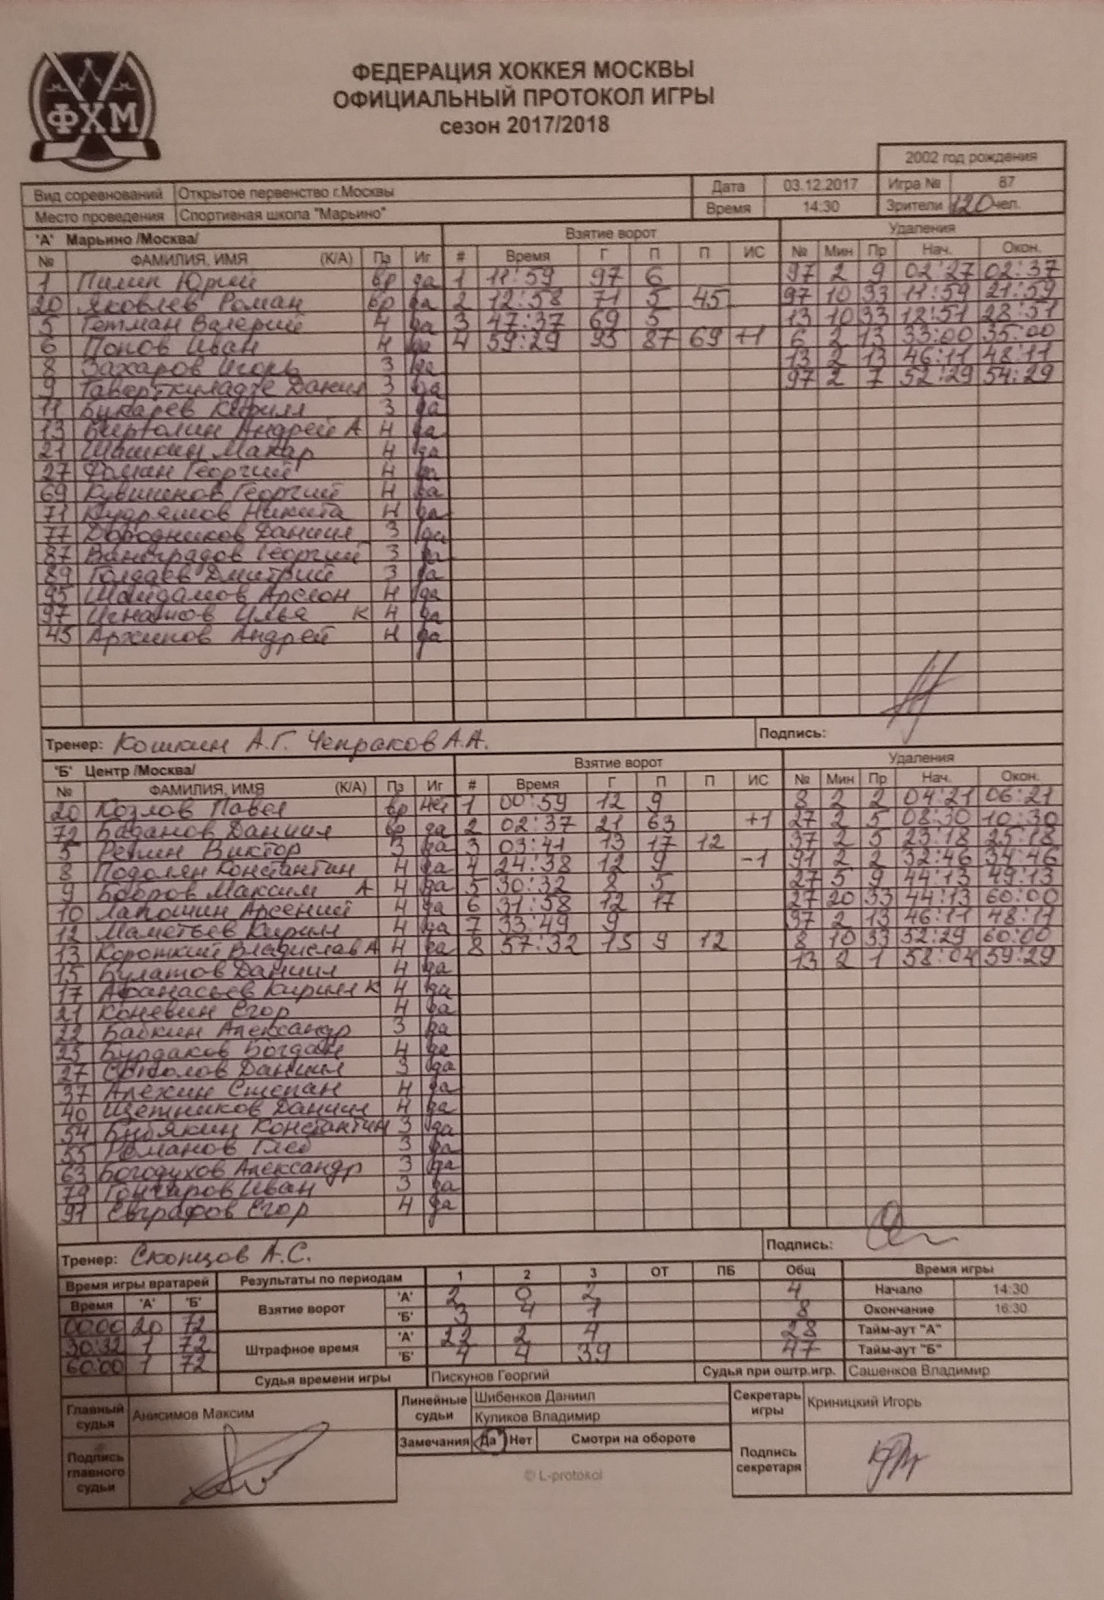 ФХМ
ФЕДЕРАЦИЯ ХОККЕЯ МОСКВЫ
ОФИЦИАЛЬНЫЙ ПРОТОКОЛ ИГРЫ
сезон 2017/2018
2002 год рождения
Вид соревнований Открытое первенство г.Москвы Дата 03.12.2017 Игра № 87
Место проведения Спортивная школа "Марьино" Время 14:30 Зрители 120 чел.
"А" Марьино /Москва/ Взятие ворот Удаления
№ ФАМИЛИЯ, ИМЯ (К/А) Пз Иг # Время Г П П ИС № Мин Пр Нач. Окон.
1 Пилип Юрий вр да 1 11:59 97 6 97 2 9 02:27 02:37
20 Яковлев Роман вр да 2 12:58 71 5 45 97 10 33 11:59 21:59
5 Гетман Валерий Н да 3 47:37 69 5 13 10 33 18:51 28:51
6 Попов Иван Н да 4 59:29 95 87 69 +1 6 2 13 33:00 35:00
8 Захаров Игорь З да 13 2 13 46:11 48:11
9 Даниил З да 97 2 7 52:29 54:29
11 Букарев Кирилл З да
13 Андрей А Н да
21 Шашкин Макар Н да
27 Фолиан Георгий Н да
69 Кувшинов Георгий Н да
71 Кудряшов Никита Н да
77 Дородников Даниил З да
87 Виноградов Георгий З да
89 Голдаев Дмитрий З да
95 Арслон Н да
97 Игнатов Илья К Н да
45 Архипов Андрей Н да
Тренер: Кошкин А.Г. Чепраков А.А. Подпись:
"Б" Центр /Москва/ Взятие ворот Удаления
№ ФАМИЛИЯ, ИМЯ (К/А) Пз Иг # Время Г П П ИС № Мин Пр Нач. Окон.
20 Козлов Павел вр нет 1 00:59 12 9 8 2 2 04:21 06:21
72 Баданов Даниил вр да 2 02:37 21 63 +1 27 2 5 08:30 10:30
5 Репин Виктор З да 3 03:41 13 17 12 37 2 5 23:18 25:18
8 Подолян Константин Н да 4 24:38 12 9 -1 91 2 2 32:46 34:46
9 Бобров Максим А Н да 5 30:32 8 5 27 5 9 44:13 49:13
10 Лапошин Арсений Н да 6 31:58 12 17 27 20 33 44:13 60:00
12 Маметьев Кирилл Н да 7 33:49 9 37 2 13 46:11 48:11
13 Короткий Владислав А Н да 8 57:32 15 9 12 8 10 33 52:29 60:00
15 Булатов Даниил Н да 13 2 1 58:04 59:29
17 Афанасьев Кирилл К Н да
21 Коневин Егор Н да
22 Бабкин Александр З да
25 Бурдаков Богдан Н да
27 Даниил З да
37 Алехин Степан Н да
40 Щетников Даниил Н да
54 Константин З да
55 Романов Глеб З да
63 Богодухов Александр З да
79 Гончаров Иван З да
91 Евграфов Егор Н да
Тренер: Скопцов А.С. Подпись:
Время игры вратарей Результаты по периодам 1 2 3 ОТ ПБ Общ Время игры
Время "А" "Б" Взятие ворот "А" 2 0 2 4 Начало 14:30
00:00 20 72 "Б" 3 4 1 8 Окончание 16:30
30:32 1 72 Штрафное время "А" 22 2 4 28 Тайм-аут "А"
60:00 1 72 "Б" 4 4 39 47 Тайм-аут "Б"
Судья времени игры Пискунов Георгий Судья при оштр.игр. Сашенков Владимир
Главный судья Анисимов Максим Линейные судьи Шибенков Даниил Секретарь игры Криницкий Игорь
Куликов Владимир
Замечания Да Нет Смотри на обороте
Подпись главного судьи Подпись секретаря
© L-protokol